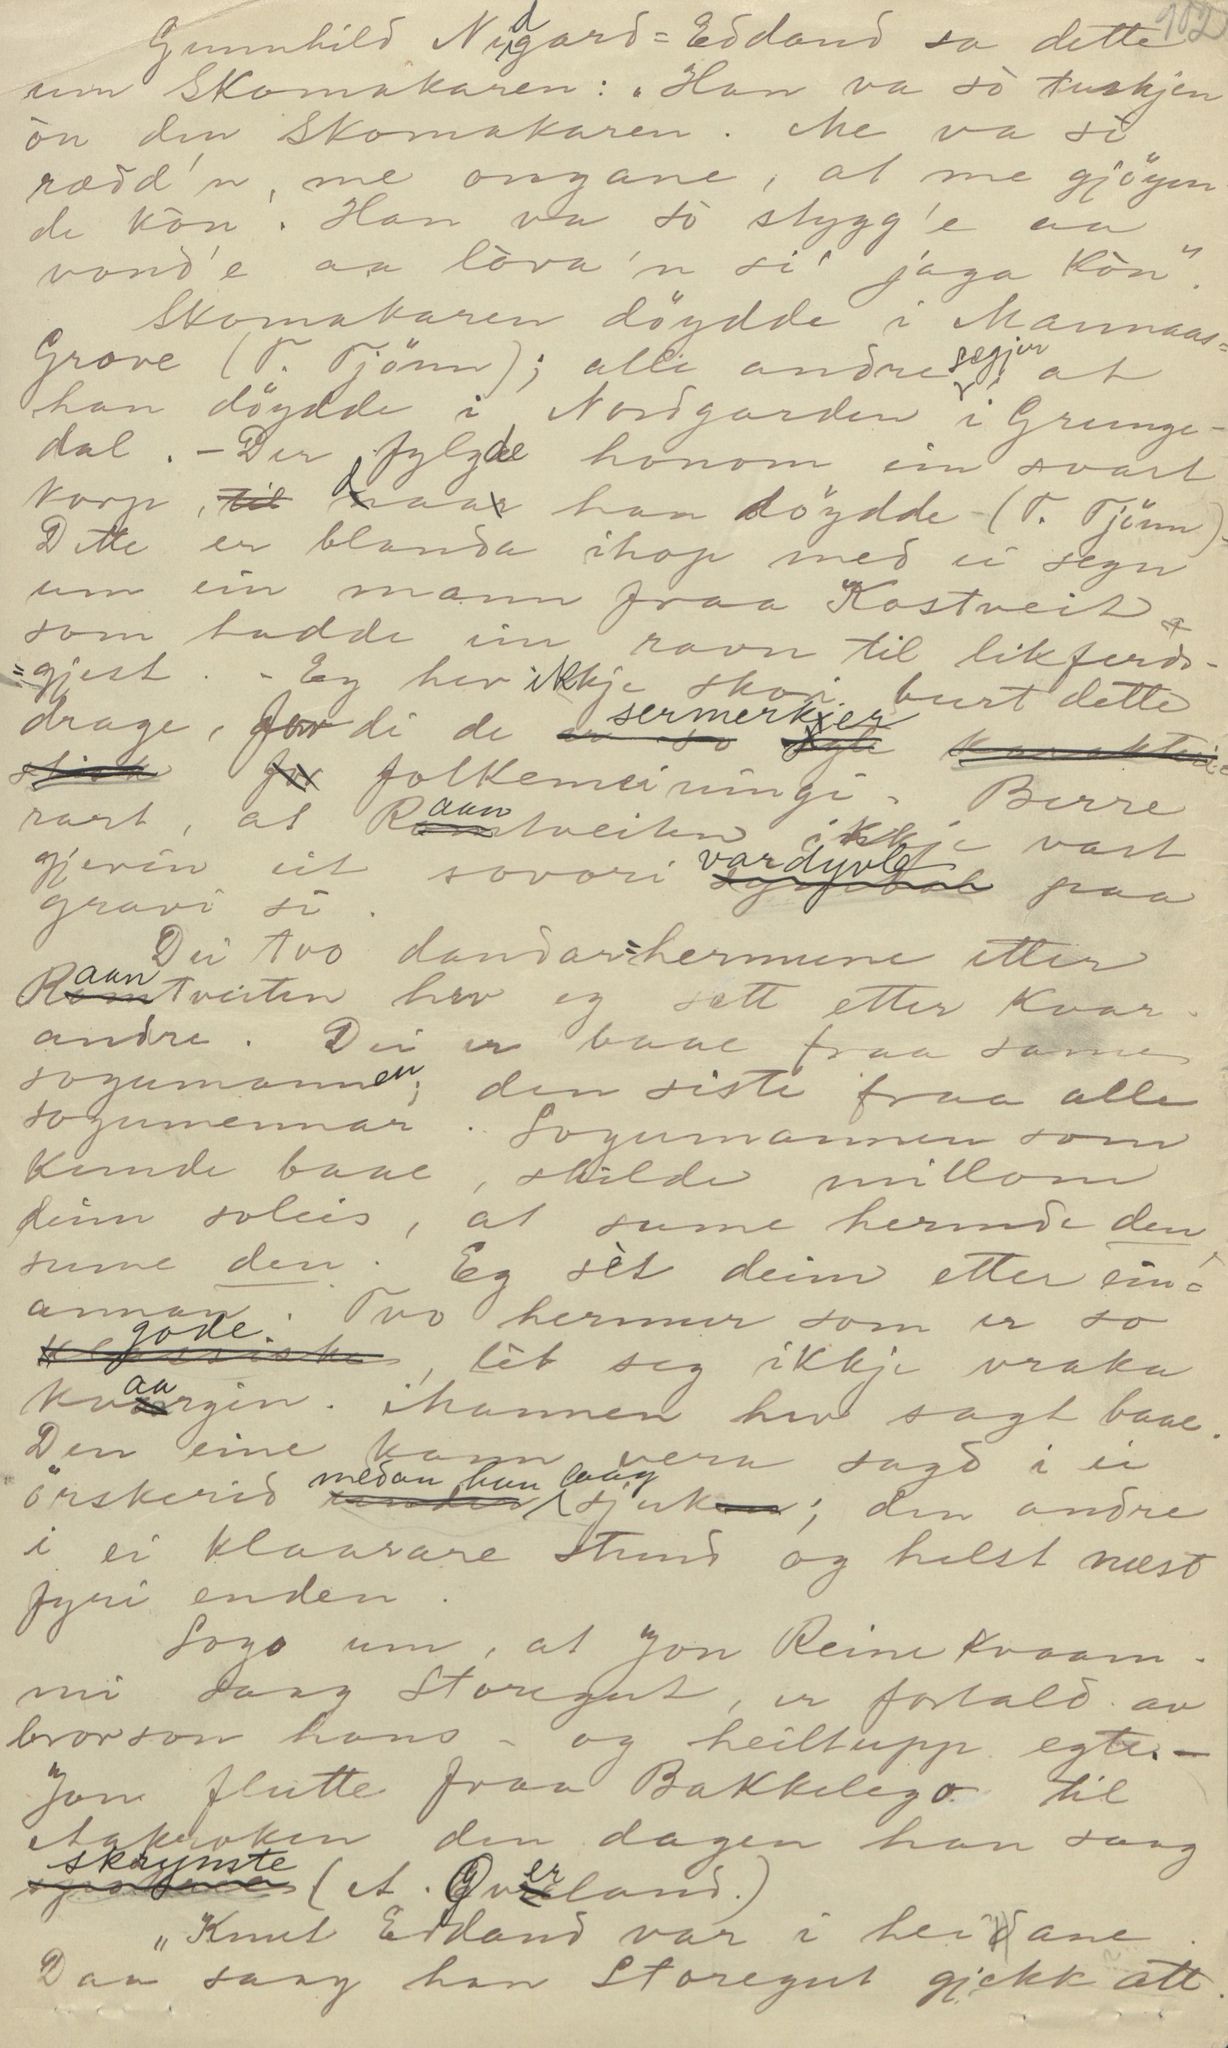 902
Gunnhild Nidgard=Edland sa dette
um Skomakaren: "Han va sò tuskjen
òn den Skomakaren. Me va sò
rædd'n, me ongane, at me gjöym
de kòn'. Han va sò stygg'e aa
vond'e aa lòva'n si' jaga kòn".
Skomakaren döydde i Mannaas=
Grove (T. Tjönn); alle andre segjer at
han döydde i Nordgarden i Grunge-
dal. - Der fylgde honom ein svart
korp, til daa han döydde (T. Tjönn)-
Dette er blanda ihop med ei segn
um ein mann fraa Kostveit
som hadde ein ravn til likferds-
=gjest. - Eg hev ikkje skori burt dette
drage, fordi de er so sermerkjer
folkemeiningi. Berre
rart, at Raamtveiten ikkje vart
gjevin eit sovori vardyvle paa
gravi si.
Dei tvo dandar=hermune etter
Raamtveiten hev eg sett etter kvar-
andre. Dei er baae fraa same
sogumannen; den siste fraa alle
sogumennar. Sogumannen som
kunde baae, skilde millom
deim soleis, at sume hermde den
sume den. Eg sèt deim etter ein=
annan. Tvo hermur som er so
gode, lèt seg ikkje vraka
kvaargin. Mannen hev sagt baae.
Den eine kann vera sagd i ei
örskerid medan han laag sjuk; den andre
i ei klaarare stund og helst næst
fyri enden.
Sogo um, at Jon Reine Kvaam-
mi saag Storegut, er fortald av
brorson hans - og heiltupp egte. -
Jon flutte fraa Bakkelego til
Aakeroken den dagen han saag
skrymste (A. Överland.)
"Knut Edland var i heidane.
Daa saag han Storegut gjekk att.